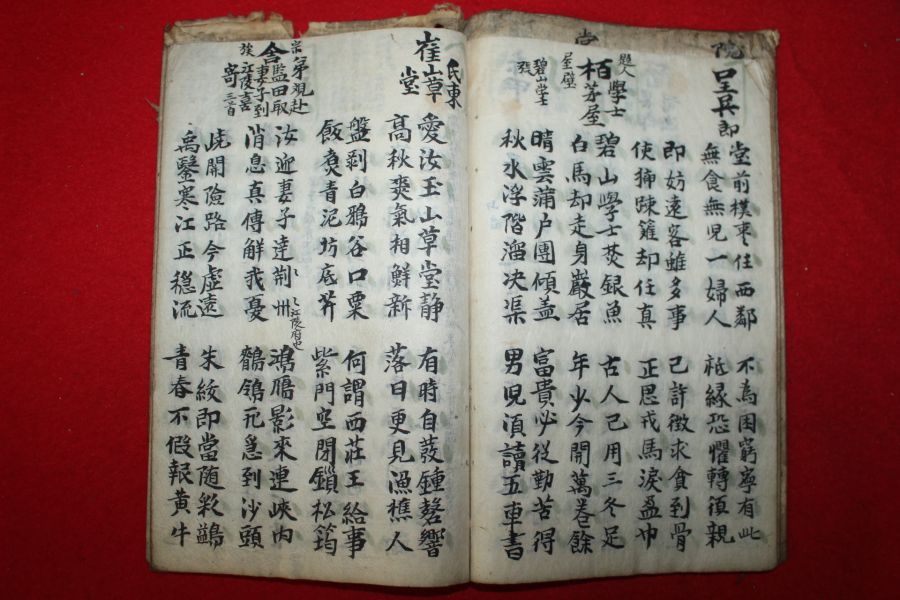 院呈吳郎
堂前樸棗任西鄰 不為困窮寧有此
無食無児一婦人 祗緣恐懼轉須親
即妨遠客雖多事 已許徵求貪到骨
使挿踈籬却任真 正思戎馬淚盈巾
栢學士茅屋
碧山學士焚銀魚 古人已用三冬足
白馬却走身巖居 年少今開萬卷餘
晴雲蒲户團傾盖 富貴必從勤苦得
秋水浮階溜决渠 男児須讀五車書
崔氏東山草堂
愛汝玉山草堂静 有時自發鍾磬響
高秋爽氣相鮮新 落日更見漁樵人
盤剥白鴉谷口粟 何謂西莊王給事
飯煑青泥坊底芹 紫門空閉鎖松筠
舍弟觀赴藍田取妻子到江陵喜寄三首
汝迎妻子達荆州 江陵府也 鴻鴈影來連峽内
消息真傳解我憂 鶺鴒飛急到沙頭
嶢開險路今虛遠 朱紱即當随彩鷁
禹鑿寒江正穩流 青春不假報黄牛